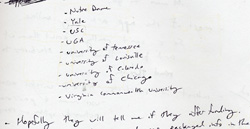 - Notre Dame
- Yale
- USC
- UGA
- university of Tennessee
- university of Louisville
- university of Colorado
- university of Chicago
- Virginia Commonwealth University
- Hopefully they will tell me if they offer funding
info in the